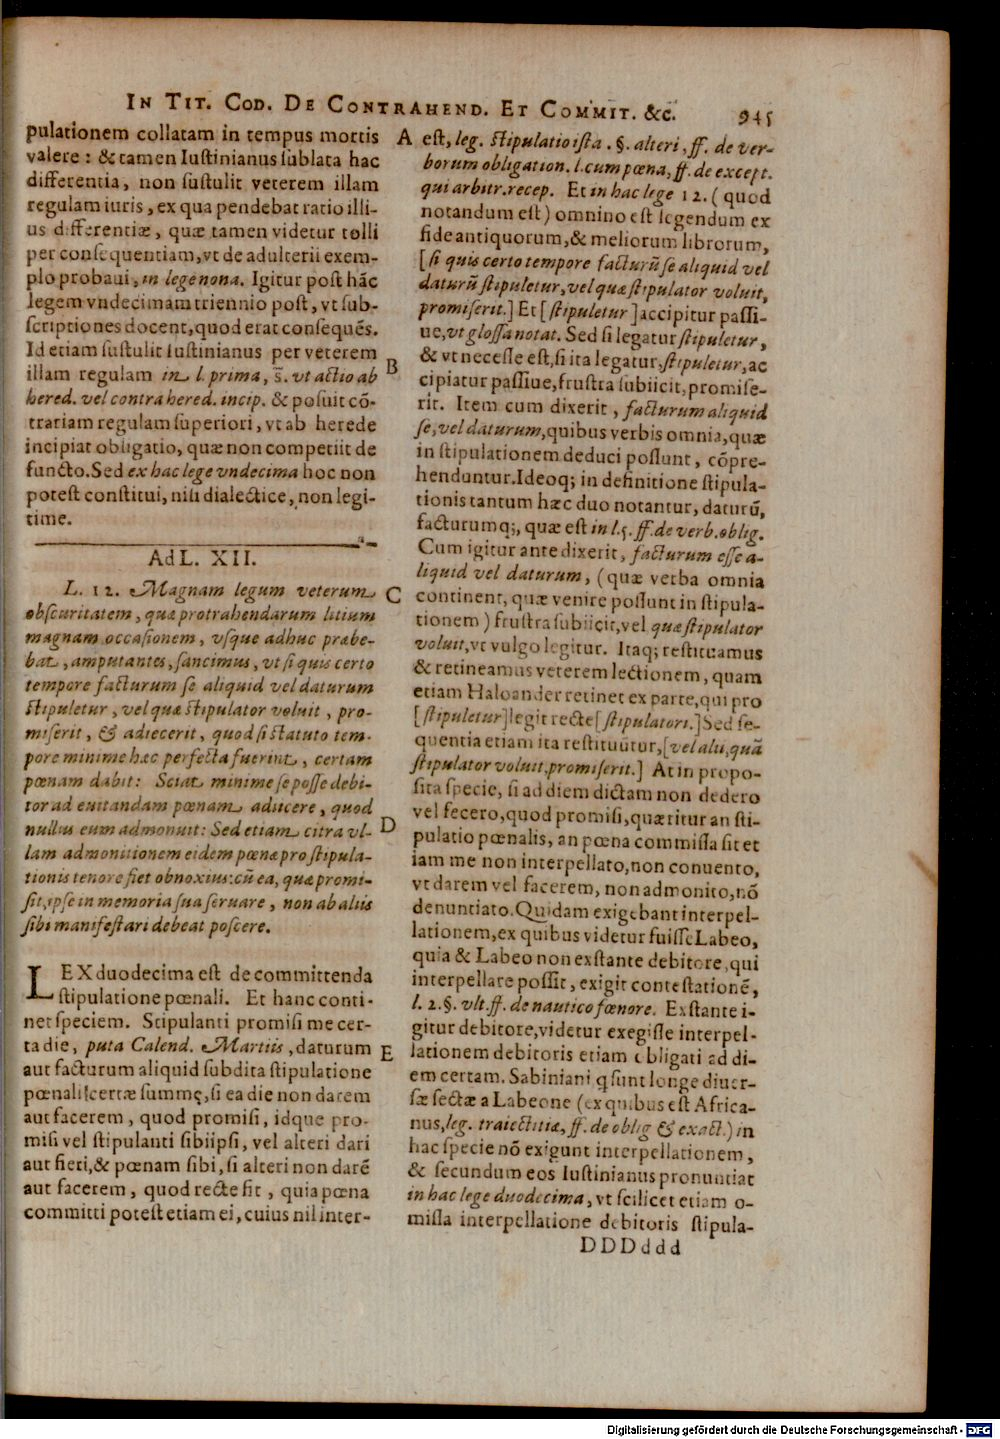 IN TIT. COD. DE CONTRAHEND. ET COMMIT. &c. 945
pulationem collatam in tempus mortis
valere: & tamen Iustinianus sublata hac
differentia, non sustulit veterem illam
regulam iuris, ex qua pendebat ratio illi-
us differentiæ, quæ tamen videtur tolli
per consequentiam, vt de adulterii exem-
plo probaui, in lege nona. Igitur post hāc
legem vndecimam triennio post, vt sub-
scriptiones docent, quod erat consequēs.
Id etiam sustulit Iustinianus per veterem
illam regulam in l. prima, s̄. vt actio ab
hered. vel contra hered. incip. & posuit cō-
trariam regulam superiori, vt ab herede
incipiat obligatio, quæ non competiit de
functo. Sed ex hac lege vndecima hoc non
potest constitui, nisi dialectice, non legi-
time.
Ad L. XII.
L. 12. Magnam legum veterum
obscuritatem, quæ protrahendarum litium
magnam occasionem, vsque adhuc præbe-
bat, amputantes, sancimus, vt si quis certo
tempore facturum se aliquid vel daturum
stipuletur, vel quæ stipulator voluit, pro-
miserit, & adiecerit, quod si statuto tem-
pore minime hæc perfecta fuerint, certam
pœnam dabit: Sciat minime se posse debi-
tor ad euitandam pœnam adiicere, quod
nullus eum admonuit: Sed etiam citra vl-
lam admonitionem eidem pœnæ pro stipula-
tionis tenore fiet obnoxius: cū ea, quæ promi-
sit, ipse in memoria sua seruare, non ab aliis
sibi manifestari debeat poscere.
LEX duodecima est de committenda
stipulatione pœnali. Et hanc conti-
net speciem. Stipulanti promisi me cer-
ta die, puta Calend. Martiis, daturum
aut facturum aliquid subdita stipulatione
pœnali certæ summę, si ea die non darem
aut facerem, quod promisi, idque pro-
misi vel stipulanti sibi ipsi, vel alteri dari
aut fieri, & pœnam sibi, si alteri non darē
aut facerem, quod recte fit, quia pœna
committi potest etiam ei, cuius nil inter-
A
B
C
D
E
est, leg. stipulatio ista. §. alteri, ff. de ver-
borum obligation. l. cum pœna, ff. de except.
qui arbitr. recep. Et in hac lege 12. (quod
notandum est) omnino est legendum ex
fide antiquorum, & meliorum librorum,
[si quis certo tempore facturū se aliquid vel
daturū stipuletur, vel quæ stipulator voluit,
promiserit.] Et [stipuletur] accipitur passi-
ue, vt glossa notat. Sed si legatur stipuletur,
& vt necesse est, si ita legatur, stipuletur, ac
cipiatur passiue, frustra subiicit, promise-
rit. Item cum dixerit, facturum aliquid
se, vel daturum, quibus verbis omnia, quæ
in stipulationem deduci possunt, cōpre-
henduntur. Ideoq; in definitione stipula-
tionis tantum hæc duo notantur, daturū,
facturumq;, quæ est in l. 5. ff. de verb. oblig.
Cum igitur ante dixerit, facturum esse a-
liquid vel daturum, (quæ verba omnia
continent, quæ venire possunt in stipula-
tionem) frustra subiicit, vel quæ stipulator
voluit, vt vulgo legitur. Itaq; restituamus
& retineamus veterem lectionem, quam
etiam Haloander retinet ex parte, qui pro
[stipuletur] legit recte [stipulatori.] Sed se-
quentia etiam ita restituūtur, [vel alii, quā
stipulator voluit, promiserit.] At in propo-
sita specie, si ad diem dictam non dedero
vel fecero, quod promisi, quæritur an sti-
pulatio pœnalis, an pœna commissa sit et
iam me non interpellato, non conuento,
vt darem vel facerem, non admonito, nō
denuntiato. Quidam exigebant interpel-
lationem, ex quibus videtur fuisse Labeo,
quia & Labeo non exstante debitore, qui
interpellare possit, exigit contestationē,
l. 2. §. vlt. ff. de nautico fœnore. Exstante i-
gitur debitore, videtur exegisse interpel-
lationem debitoris etiam obligati ad di-
em certam. Sabiniani q̄ sunt longe diuer-
sæ sectæ a Labeone (ex quibus est Africa-
nus, leg. traiectitiæ, ff. de oblig & exact.) in
hac specie nō exigunt interpellationem,
& secundum eos Iustinianus pronuntiat
in hac lege duodecima, vt scilicet etiam o-
missa interpellatione debitoris stipula-
DDDddd
Digitalisierung gefördert durch die Deutsche Forschungsgemeinschaft - DFG